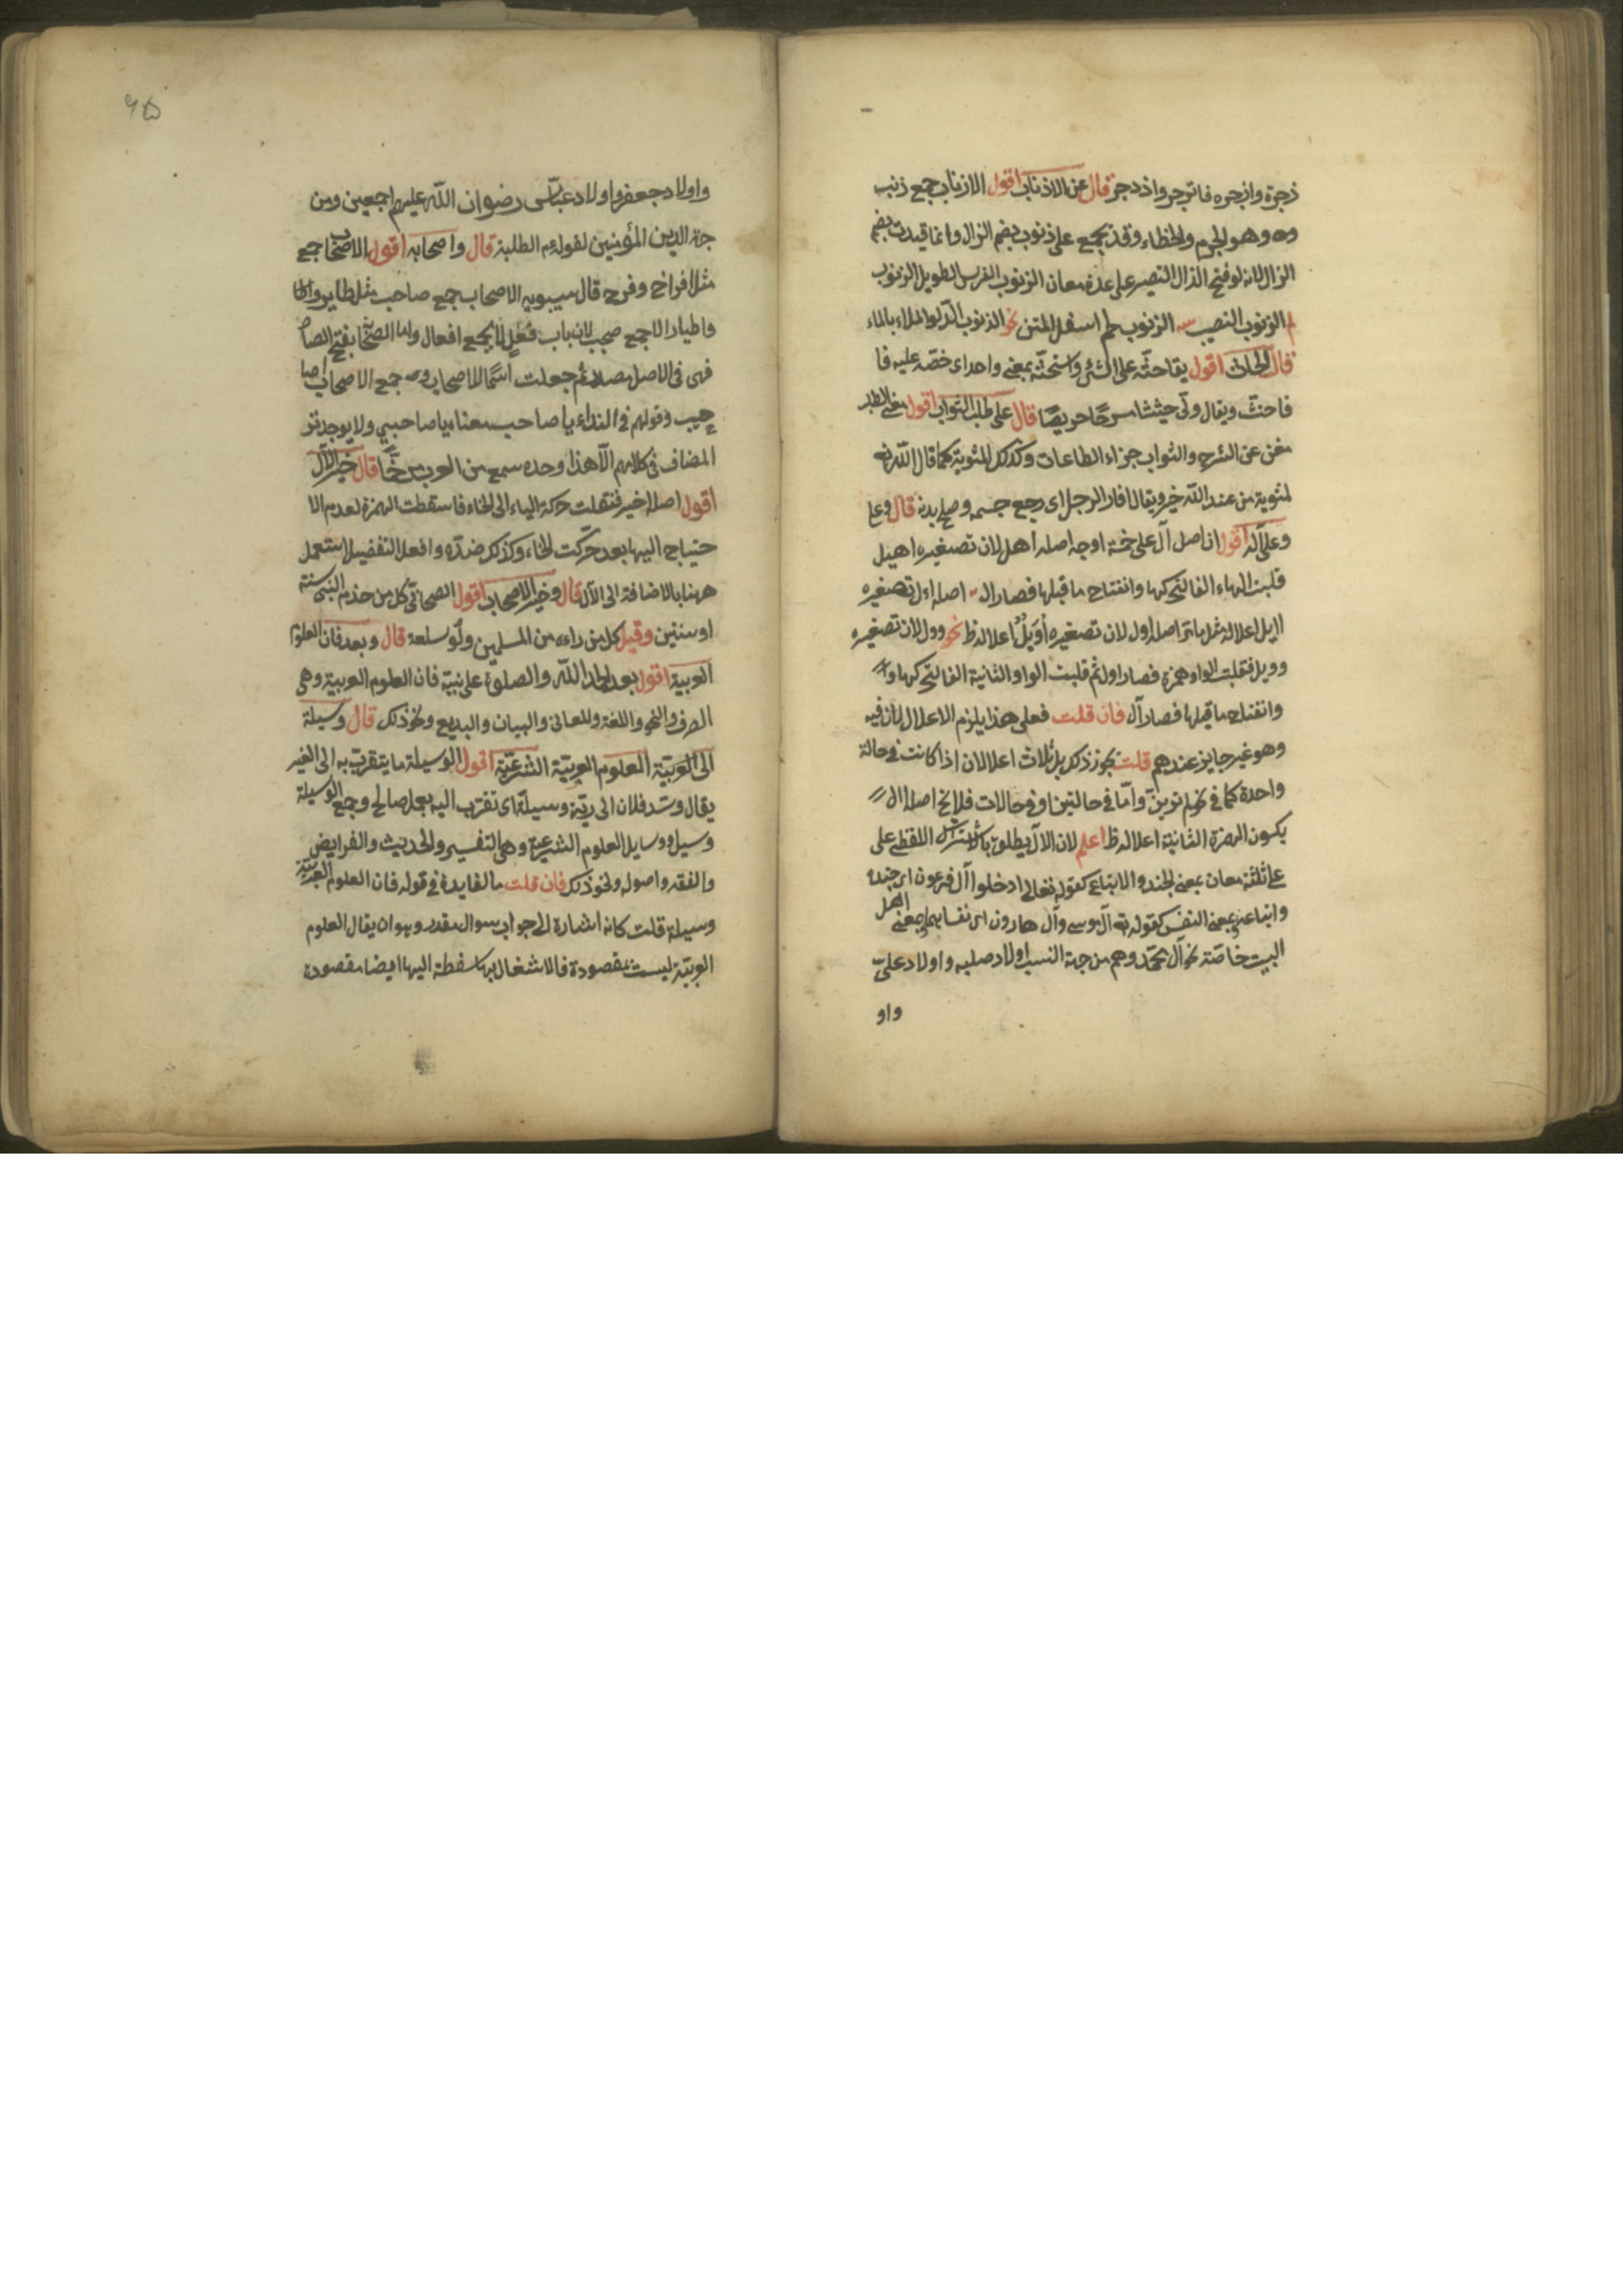 ذجرة وانجره فانزجر وازدجر قال عن الاذناب اقول الاذناب جمع ذنب
وهو الجرم والخطاء وقد يجمع على ذنوب بضم الزال وانما قيدت بضم
الزال لانه لو فتح الذال النصير على عدة معان الزنوب الفرس الطويل الزنوب
الزنوب النصيب الزنوب لحم اسفل المتن الذنوب الدلو الملاء بالماء
قال الحاث اقول يقا حثه على الشئ واستحثه بمعنى واحد اى خضه عليه فا
فاحثث ويقال ولى حثيثا حريصا قال على طلب الثواب اقول معنى الطلب
مغن عن الشرح والثواب جزاء الطاعات وكذلك المثوبة كما قال الله تع
لمثوبة من عند الله خير ويقال افار الرجل اى رجع جسمه وصلح بدنه قال وعلى
وعلى آله اقول ان اصل آل على خمسة اوجه اصله اهل لان تصغيره اهيل
قلبت الهاء الفا لتحركها وانفتاح ما قبلها فصار ال اصله اءل تصغيره
اايل اعلاله مثل ما تر اصله اول لان تصغيره أويل اعلاله ظ نحو وول لان تصغيره
وويل فقلبت الواو همزة فصار اول ثم قلبت الواو الثانية الفا لتحركها وا
وانفتاح ما قبلها فصار آل فان قلت فعلى هذا يلزم الاعلال لان فيه
وهو غير جايز عندهم قلت يجوز ذلك بل ثلاث اعلالان اذا كانت فى حالة
واحدة كما فى واما فى حالتين او فى حالات فلا نح اصله اال
يكون الهمزة الثانية اعلاله ظ اعلم لان الآل يطلق باشتراك اللفظ على
على ثلثة معان بمعنى الجند والاتباع كقوله تعالى ادخلوا آل فرعون اى جنده
واتباعه وبمعنى النفس كقوله تع آل موسى وآل هارون اى نفسا بهما بمعنى اهل
البيت خاصة نحو آل محمد وهم من جهة النسب اولاد صلبه واولاد على
واو
واولاد جعفر واولاد عباس رضوان الله عليهم اجمعين ومن
جهة الدين المؤمنين لقوله الطلبة قال واصحابه اقول الاصحاب جمع
مثل افراخ وفرخ قال سيبويه الاصحاب جمع صاحب مثل طاير واطا
واطيار لا جمع صحب لان باب فعل لا يجمع افعال واما الصحابة بفتح الصا
فهى فى الاصل مصدر ثم جعلت اسما للاصحاب وجمع الاصحاب اصا
حيب وقولهم فى النداء يا صاحب معناه يا صاحبى ولا يوجد تر
المضاف فى كلامهم الا هذا وحده سمع من العرب مرخما قال خير الآل
اقول اصله اخير فنقلت حركة الياء الى الخاء فاسقطت الهمزة لعدم الا
حتياج اليها بعد حركت الخاء وكذلك ضده وافعل التفضيل استعمل
ههنا بالاضافة الى الآل قال وخير الاصحاب اقول الصحابى كل من خدم النبى سنة
او سنتين وقيل كل من راءه من المسلمين ولو سلعة قال وبعد فان العلوم
العربية اقول بعد الحمد الله والصلوة على نبيه فان العلوم العربية وهى
الصرف والنحو واللغة والمعانى والبيان والبديع ونحو ذلك قال وسيلة
الى العربية العلوم العربية الشرعية اقول الوسيلة ما يتقرب به الى الغير
يقال وسد فلان الى ربه وسيلة اى تقرب اليه بعمل صالح وجمع الوسيلة
وسيل ووسايل العلوم الشرعية وهى التفسير والحديث والفرايض
والفقه واصوله ونحو ذلك فان قلت ما الفايدة فى قوله فان العلوم العربية
وسيلة قلت كانه اشارة الى جواب سوال مقدر وهو ان يقال العلوم
العربية ليست بمقصودة فالاشغال بها سفطة اليها ايضا مقصودة